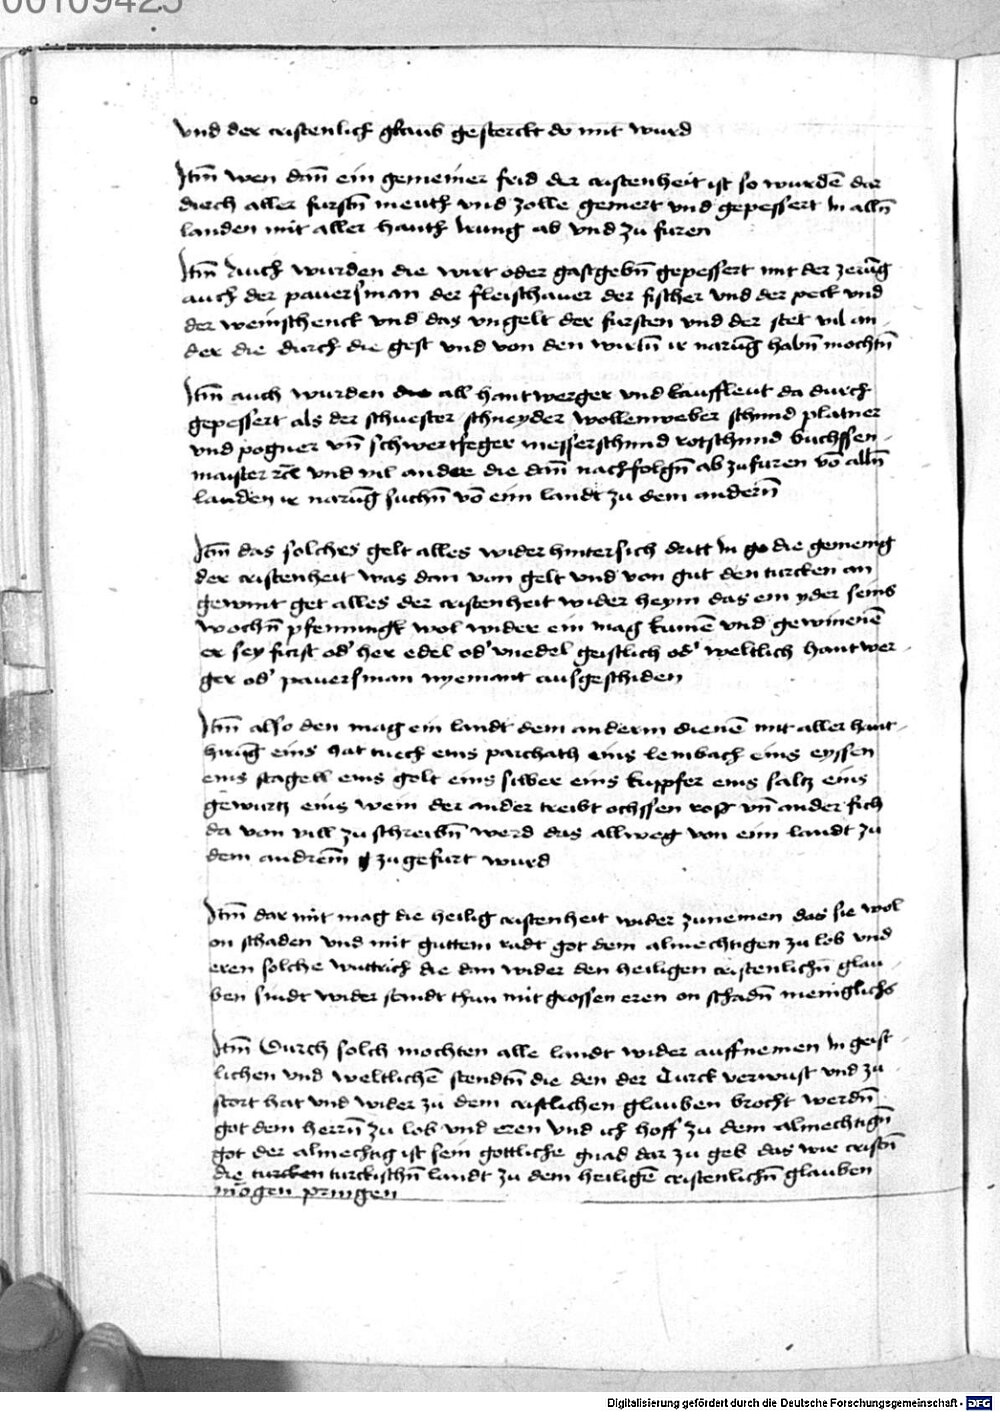 00109425
vnd der cristenlich glaub gesterckt do mit wurd
Itm̄ wen dan̄ ein gemeiner frid der cristenheit ist so wurdē dar
durch aller furstn̄ meuth vnd zolle gemert vnd gepessert In alln̄
landen mit aller hanth Irung ab vnd zu furen
Itm̄ Auch wurden die wirt oder gastgebn̄ gepessert mit der zerūg
auch der pauersman der fleischauer der fischer vnd der peck vnd
der weinschenck vnd das vngelt der fursten vnd der stet vil an -
der die durch die gest vnd von den wirtn̄ ir narūg habn̄ mochtn̄
Itm̄ auch wurden all hantwerger vnd kauffleut da durch
gepessert als der schuester schneyder wollenweber schmid platner
vnd pogner vn̄ schwertfeger messerschmid rotschmid buchssen -
maister vnd vil andere die dan̄ nachfolgn̄ ab zufuren vō alln̄
landen ir narūg suchn̄ vō eim landt zu dem andern̄
Itm̄ das solches gelt alles wider hintersich dritt In die gemenig
der cristenheit was dan von gelt vnd von gut den turcken an
gewint get alles der cristenheit wider heym das ein yder seins
wochn̄ pfenningß wol wider ein mag kumē vnd gewinenē
er sey furst od' her edel od' vnedel geistlich od' weltlich hantwer -
ger od' pauersman nyemant ausgeschiden
Itm̄ also den mag ein landt dem anderm dienē mit aller hant -
hirūg eins hat tuech eins parchath eins lembach eins eyssen
eins stagell eins golt eins silber eins kuppfer eins saltz eins
gewurtz eins wein der ander treibt ochssen roß vn̄ ander fich
da von vill zu schreibn̄ werd das allweg von eim landt zu
dem andrem̄ zugefurt wurd
Itm̄ dar mit mag die heilig cristenheit wider zunemen das sie wol
on schaden vnd mit guttem radt got dem almechtigen zu lob vnd
eren solche wuttrich die dan wider den heiligen cristenlichn̄ glau -
ben sindt wider standt thun mit grossen eren on schadn̄ meniglichs
Itm̄ Durch solch mochten alle landt wider auffnemen In geist -
lichen vnd weltlichē stendtn̄ die den der Turck verwust vnd zu -
stort hat vnd wider zu dem cristlichen glauben brocht werdn̄
got dem herrn̄ zu lob vnd eren vnd ich hoff zu dem almechtign̄
got der almechtig ist sein gottliche gnad dar zu geb das wir cristn̄
die turcken turckischn̄ landt zu dem heiligē cristenlichn̄ glauben
mogen pringen
Digitalisierung gefördert durch die Deutsche Forschungsgemeinschaft - DFG